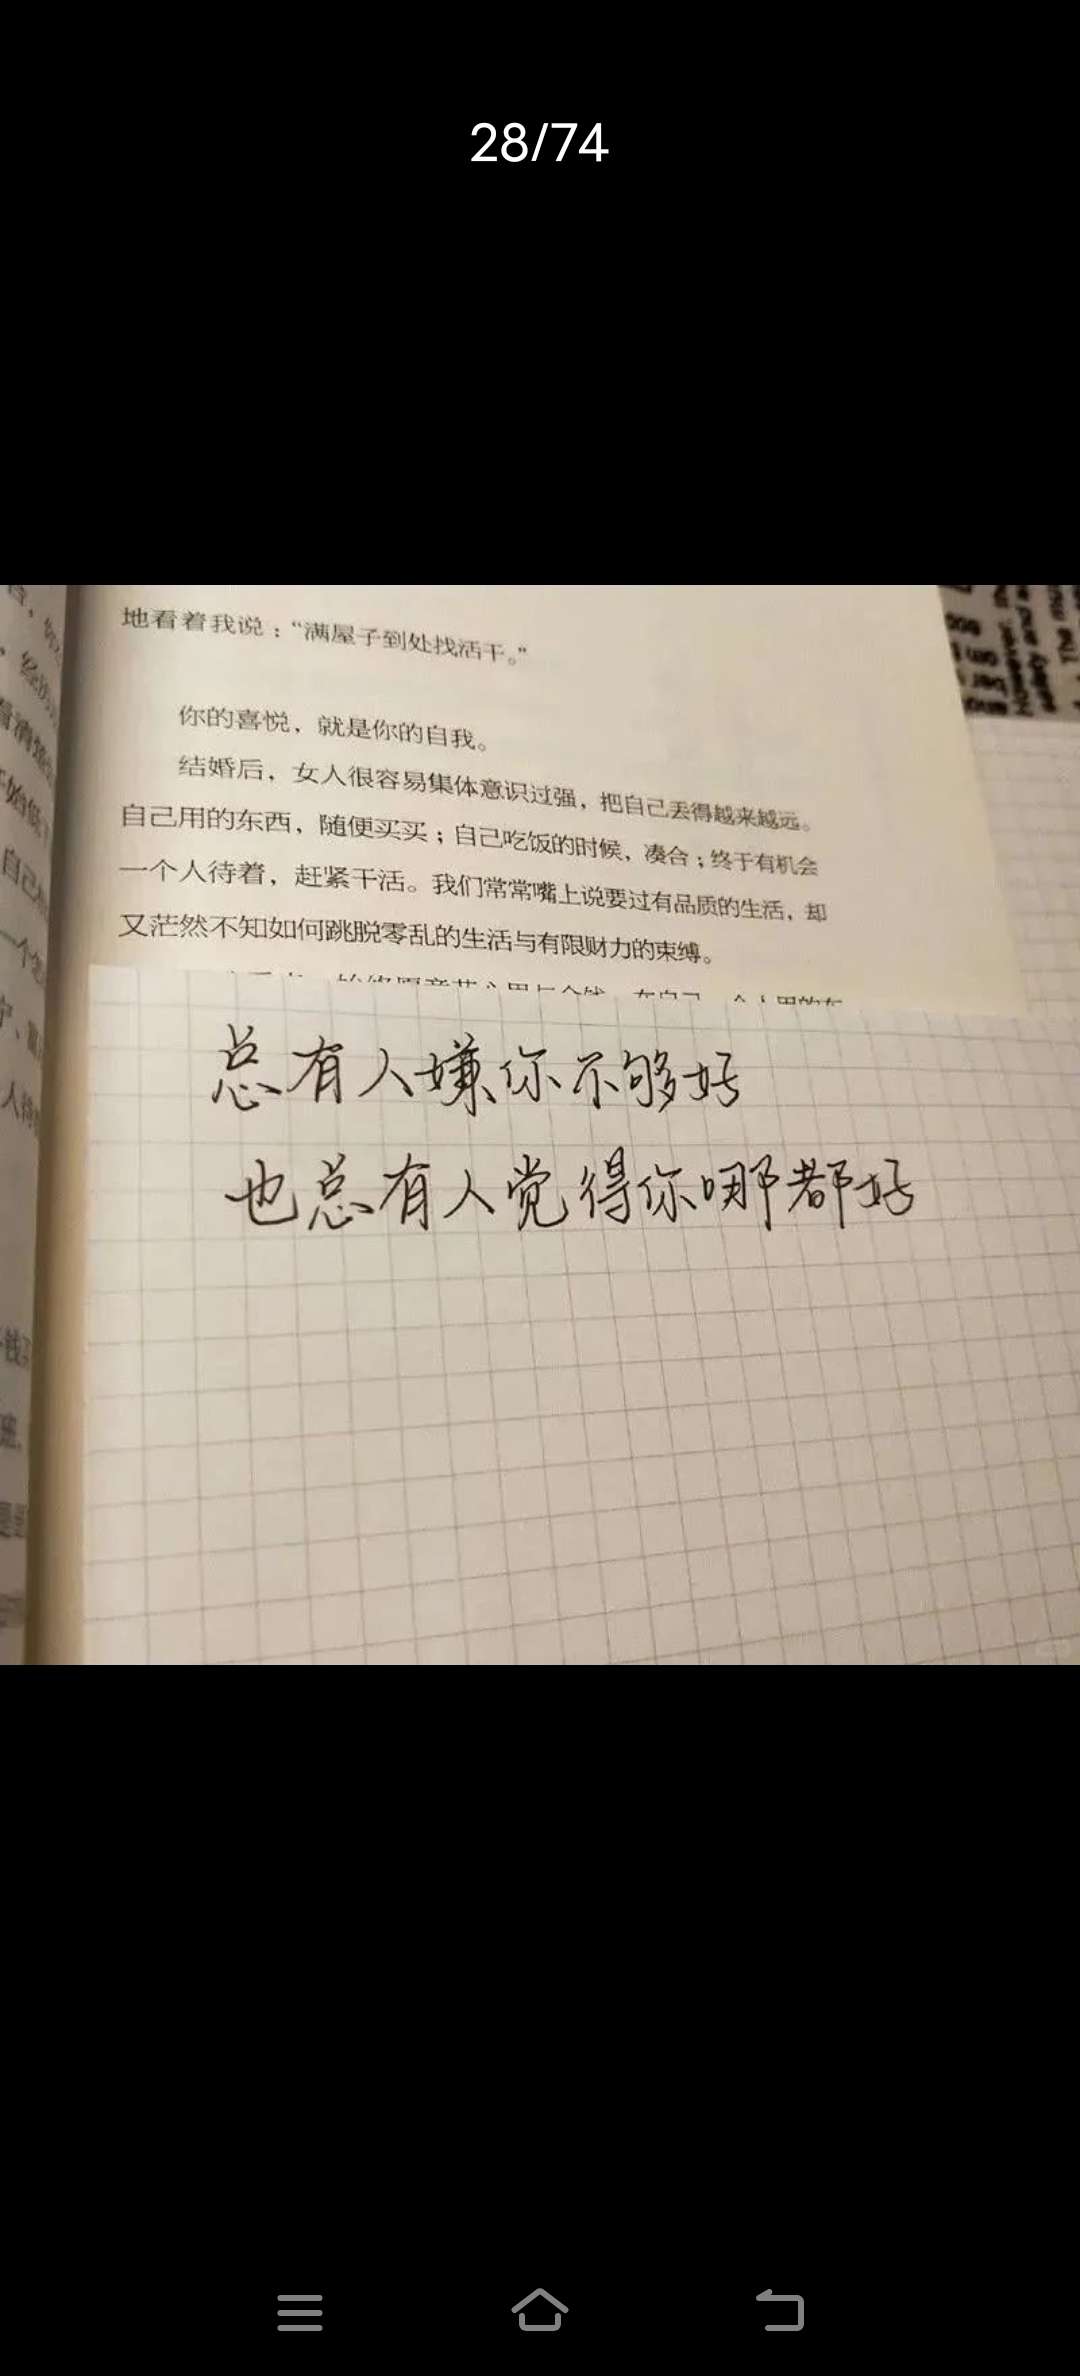 28/74
地看着我说：“满屋子到处找活干。”
你的喜悦，就是你的自我。
结婚后，女人很容易集体意识过强，把自己丢得越来越远。
自己用的东西，随便买买；自己吃饭的时候，凑合；终于有机会
一个人待着，赶紧干活。我们常常嘴上说要过有品质的生活，却
又茫然不知如何跳脱零乱的生活与有限财力的束缚。
总有人嫌你不够好
也总有人觉得你哪都好
However,
safety and
The